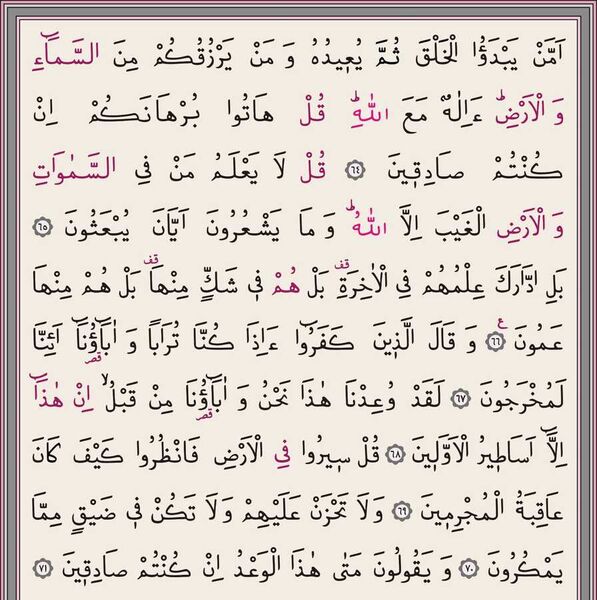 اَمَّنْ يَبْدَؤُا الْخَلْقَ ثُمَّ يُعٖيدُهُ وَ مَنْ يَرْزُقُكُمْ مِنَ السَّمَٓاءِ
وَ الْاَرْضِؕ ءَاِلٰهٌ مَعَ اللّٰهِؕ قُلْ هَاتُوا بُرْهَانَكُمْ اِنْ
كُنْتُمْ صَادِقٖينَ ﴿٦٤﴾ قُلْ لَا يَعْلَمُ مَنْ فِي السَّمٰوَاتِ
وَ الْاَرْضِ الْغَيْبَ اِلَّا اللّٰهُؕ وَ مَا يَشْعُرُونَ اَيَّانَ يُبْعَثُونَ ﴿٦٥﴾
بَلِ ادَّارَكَ عِلْمُهُمْ فِي الْاٰخِرَةِࣞ بَلْ هُمْ فٖي شَكٍّ مِنْهَاࣞ بَلْ هُمْ مِنْهَا
عَمُونَ ﴿٦٦﴾ ع وَ قَالَ الَّذٖينَ كَفَرُٓوا ءَاِذَا كُنَّا تُرَاباً وَ اٰبَٓاؤُ۬نَٓا قصر اَئِنَّا
لَمُخْرَجُونَ ﴿٦٧﴾ لَقَدْ وُعِدْنَا هٰذَا نَحْنُ وَ اٰبَٓاؤُ۬نَا قصر مِنْ قَبْلُۙ اِنْ هٰذَٓا
اِلَّٓا اَسَاطٖيرُ الْاَوَّلٖينَ ﴿٦٨﴾ قُلْ سٖيرُوا فِي الْاَرْضِ فَانْظُرُوا كَيْفَ كَانَ
عَاقِبَةُ الْمُجْرِمٖينَ ﴿٦٩﴾ وَلَا تَحْزَنْ عَلَيْهِمْ وَلَا تَكُنْ فٖي ضَيْقٍ مِمَّا
يَمْكُرُونَ ﴿٧٠﴾ وَ يَقُولُونَ مَتٰى هٰذَا الْوَعْدُ اِنْ كُنْتُمْ صَادِقٖينَ ﴿٧١﴾